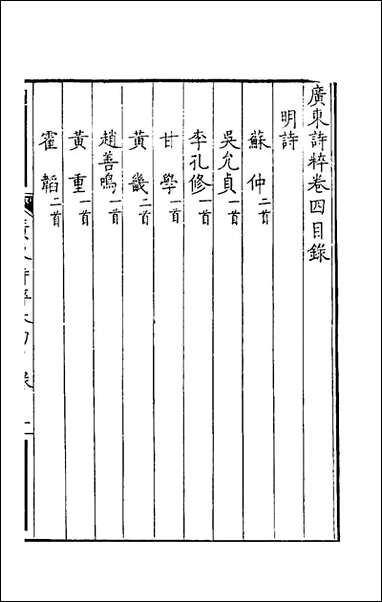 廣東詩粹卷四目錄
明詩
蘇仲二首
吳允貞一首
李孔修一首
甘學一首
黃畿二首
趙善鳴一首
黃重一首
霍韜二首